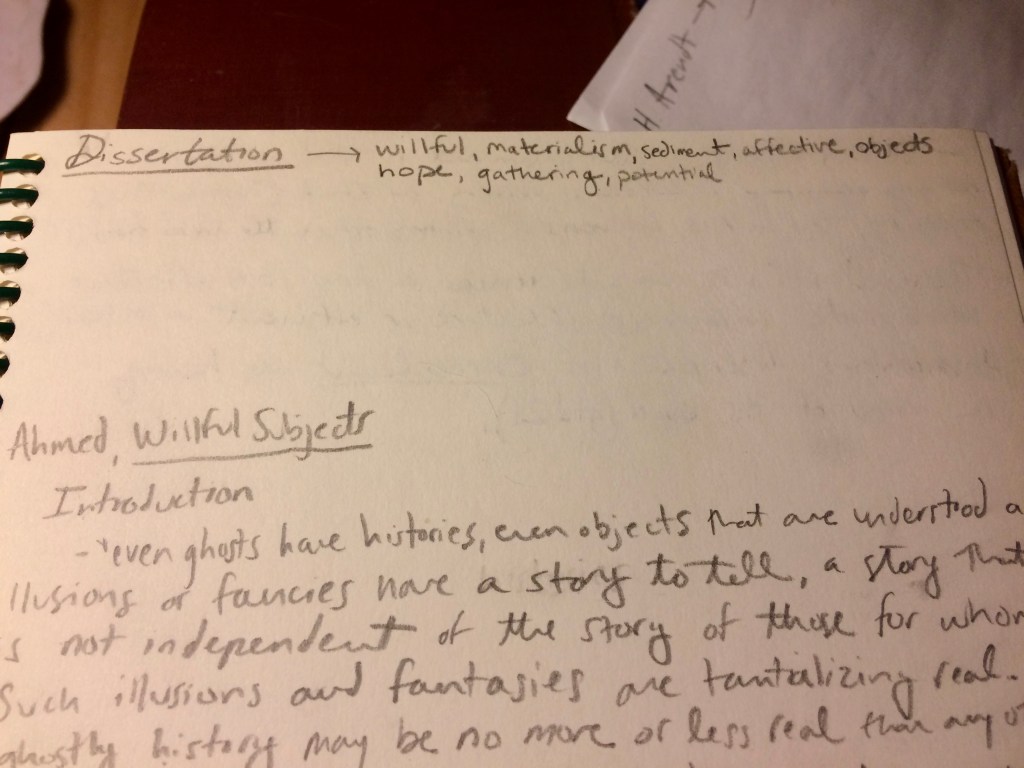 H Arendt →
Dissertation → willful, materialism, sediment, affective, objects
hope, gathering, potential
Ahmed, Willful Subjects
Introduction
- "even ghosts have histories, even objects that are understood a
llusions or fancies have a story to tell, a story that
s not independent of the story of those for whom
Such illusions and fantasies are tantalizing real.
ghostly history may be no more or less real than any o